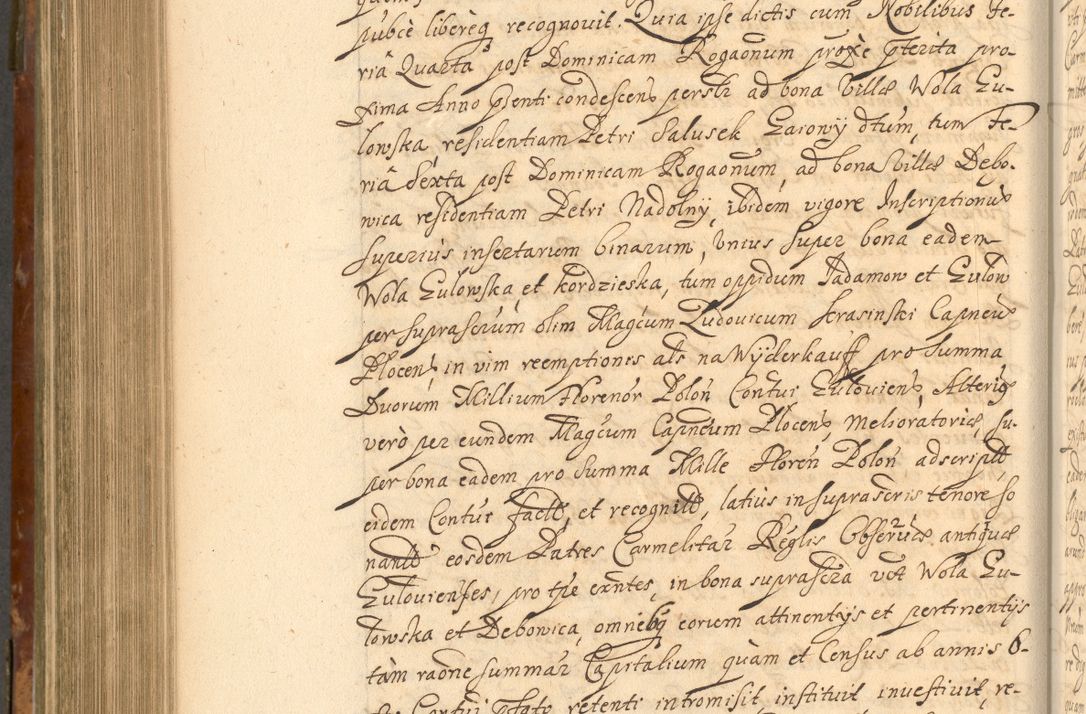 pubcè libereq recognovit. Quia ipse dictis cum Nobilibus Fe-
riâ Quarta post Dominicam Rogaõnum proxe pterita pro-
xima Anno Psenti condescens persli ad bona Villæ Wola Eu-
lowska, residentiam Petri Salusek Laiony dtum, tum Fe-
riâ Sexta post Dominicam Rogaõnum, ad bona Villæ Debo-
wica residentiam Petri Nadolny, ibidem vigore Inscriptionũ
superiùs insertarum binarum, Vnius super bona eadem
Wola Eulowska, et kordzieska, tum oppidum Jadamow et Eulow
per suprascrium olim Magcum Ludovicum krasinski Capneũ
Plocens, in vim reemptiones als na Wÿderkauff pro Summa
Duorum Millium Florenor Polon Contui Euloviens, Alterig
verò per eundem Magcum Capneum Plocens, melioratoriæ, su-
per bona eadem pro Summa Mille Floren Polon adscriptt
eidem Contui factt, et recognitt, latius in suprascris tenore so
nantt eosdem Patres Carmelitar Reglis Observæ antiquæ
Eulovienses, pro tpe exntes, in bona suprascra vct Wola Eu-
lowska et Debowica, omnibq eorum attinentÿs et pertinentÿs
tàm raõne summar Capitalium quàm et Census ab annis 6-
Contui ptato retenti intromisit, instituit, investivit, re-